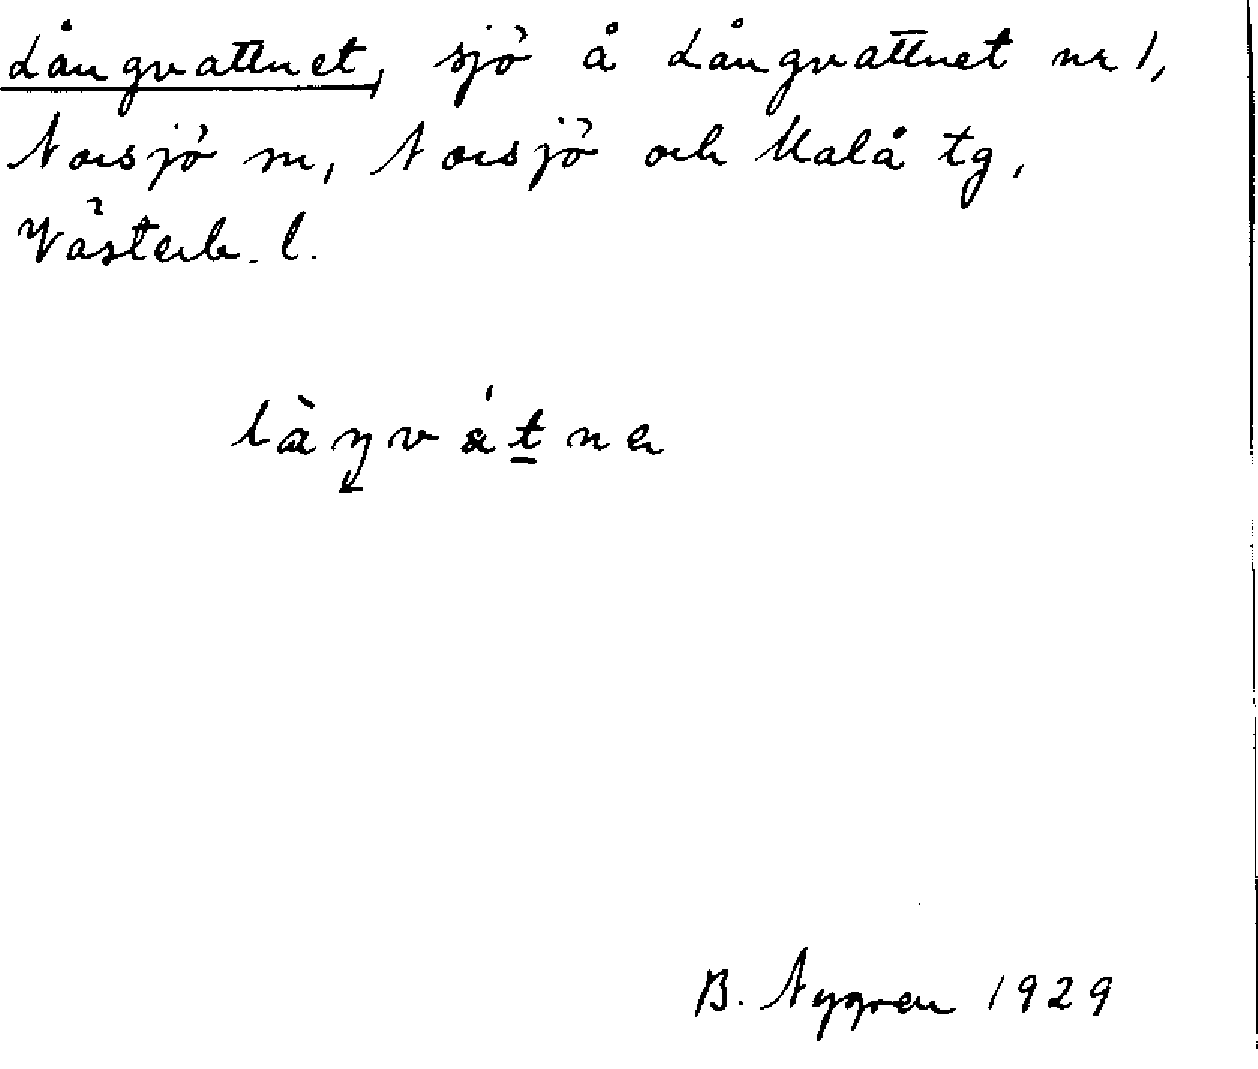 Långvattnet, sjö å Långvattnet nr 1,
Norsjö sn, Norsjö och Malå tg,
Västerb. l.
làŋvát̲ne
B. Nygren 1929